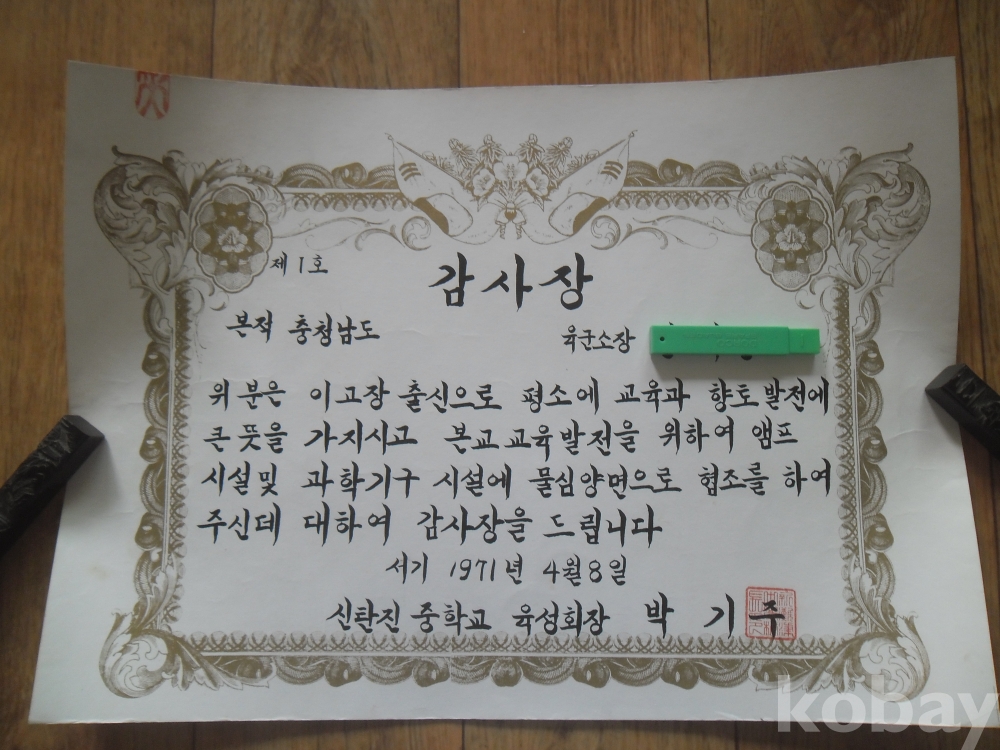 제1호
감사장
본적 충청남도
육군소장
위 분은 이고장 출신으로 평소에 교육과 향토발전에
큰 뜻을 가지시고 본교교육발전을 위하여 앰프
시설및 과학기구 시설에 물심양면으로 협조를 하여
주신데 대하여 감사장을 드립니다
서기 1971년 4월 8일
신탄진 중학교 육성회장 박 기 주
kobay